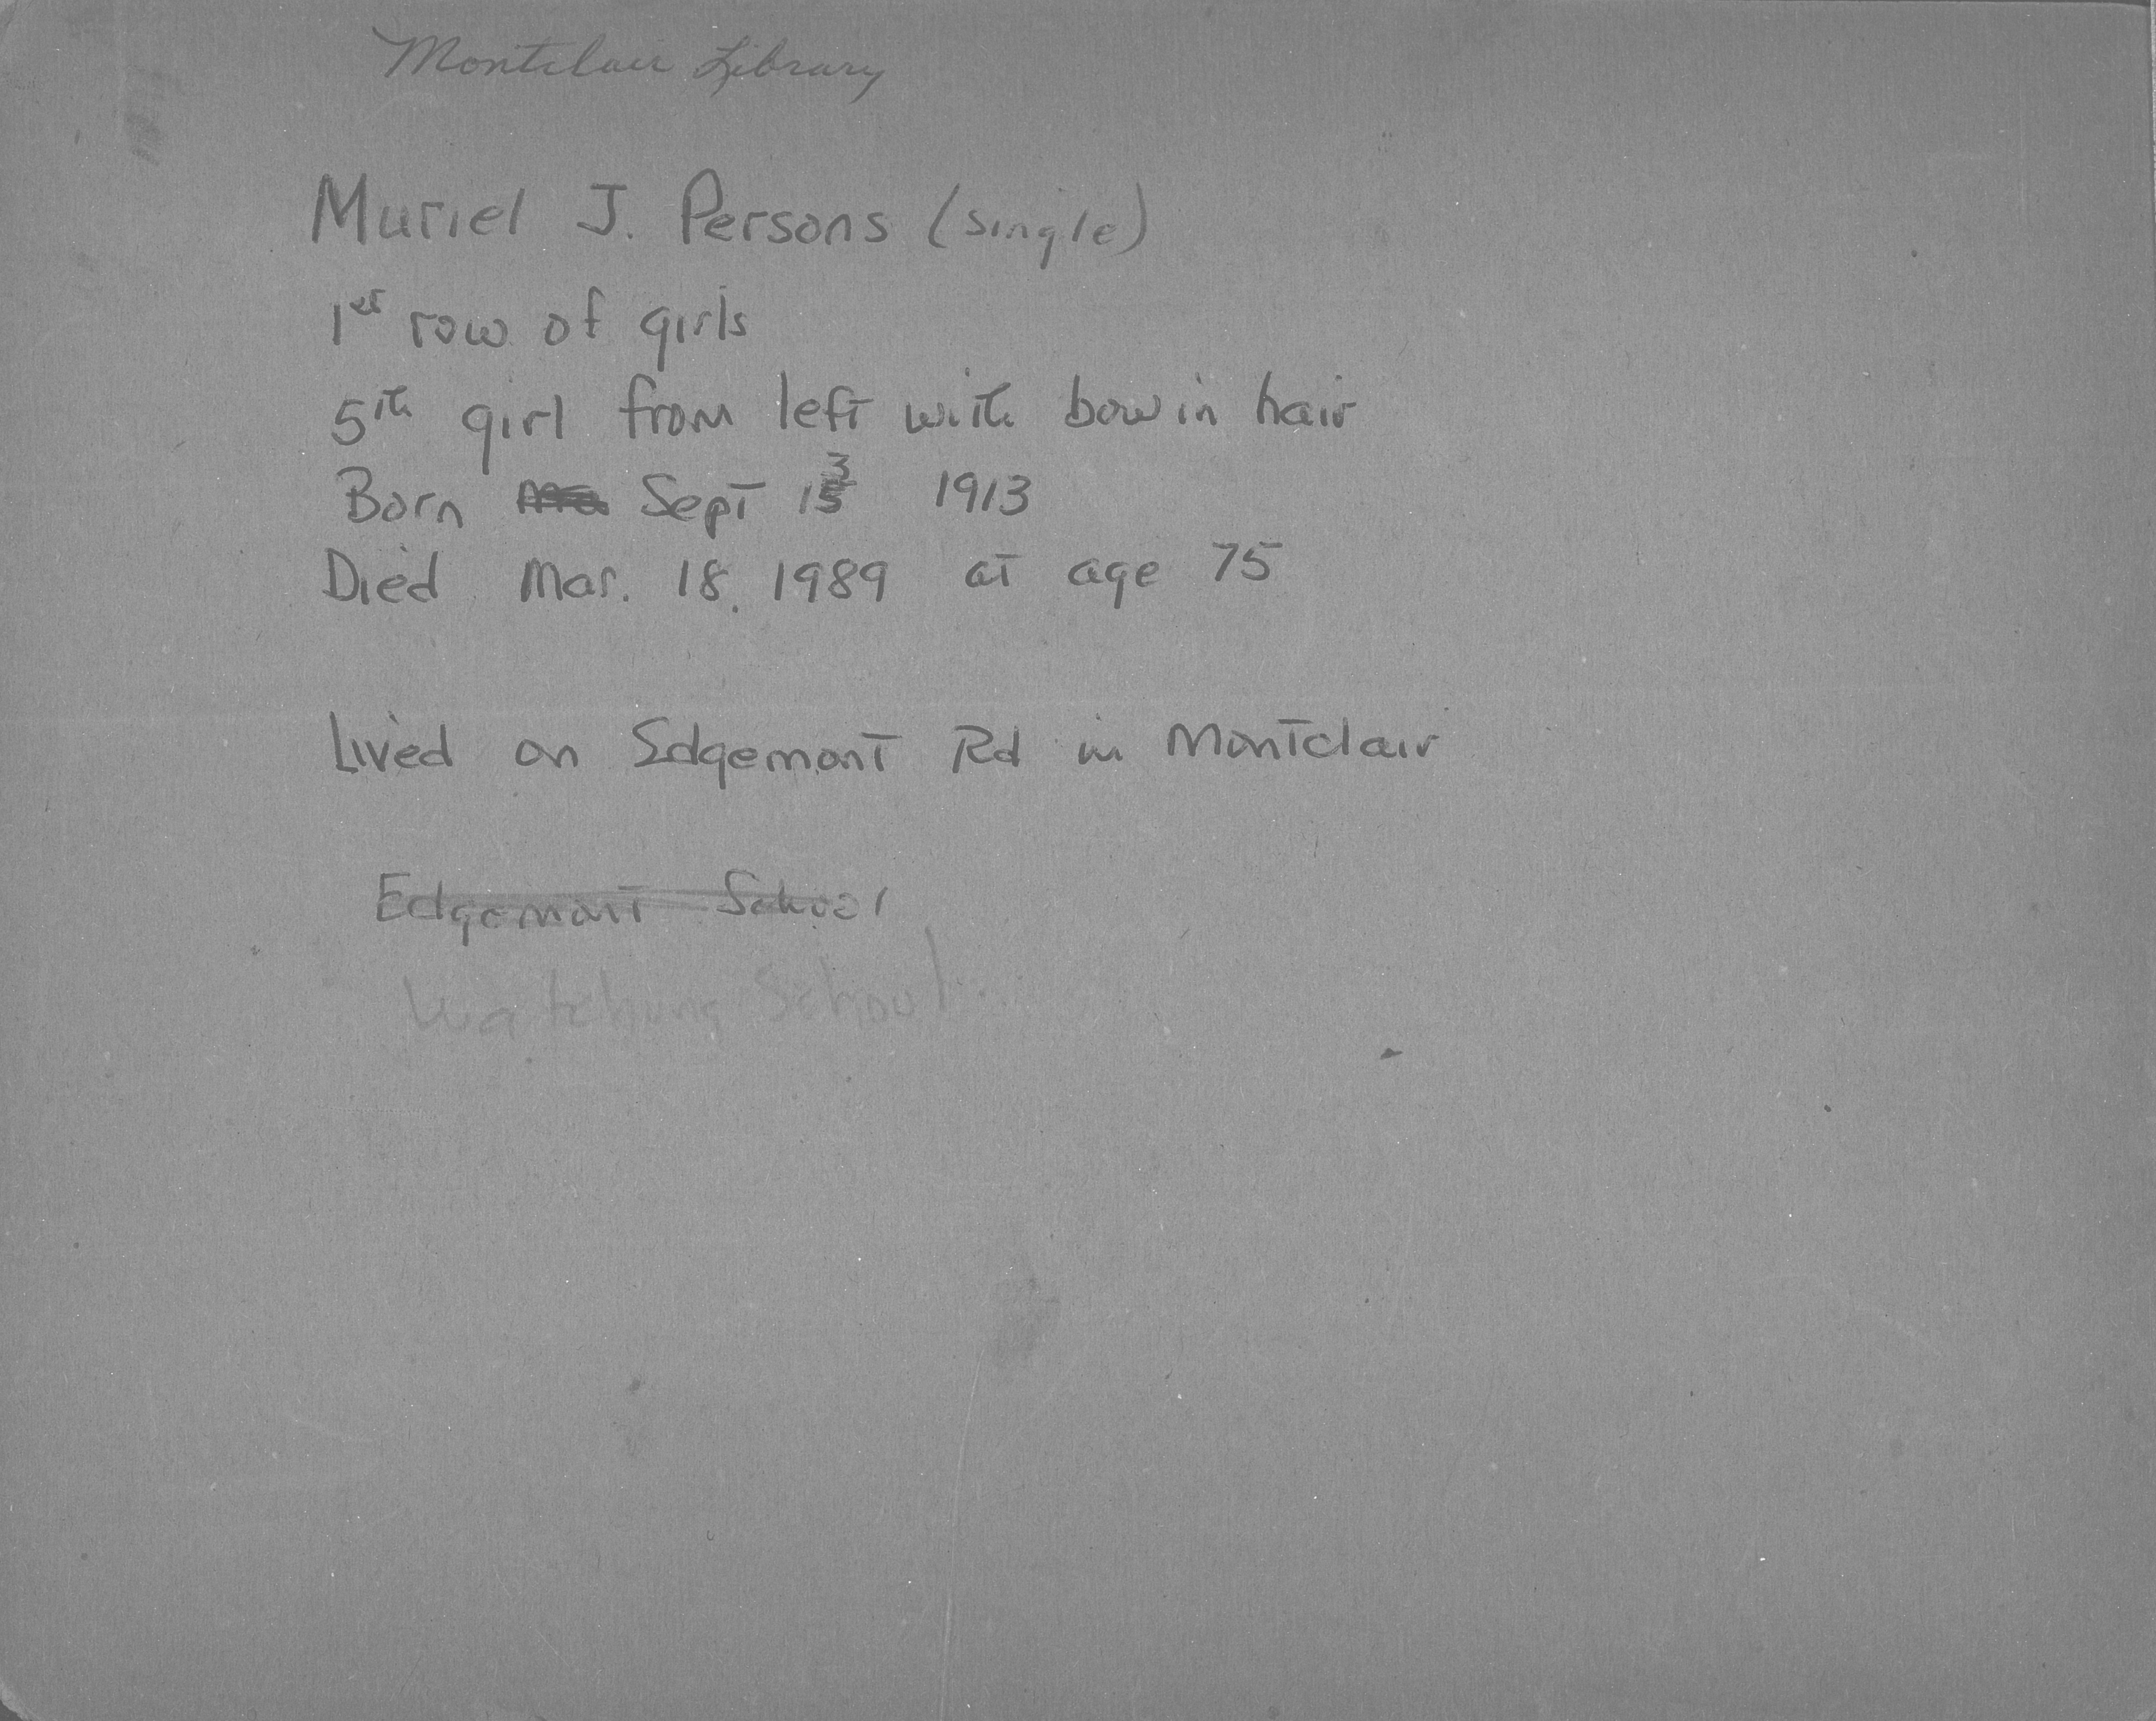 Montclair Library
Muriel J. Persons (single)
1st row of girls
5th girl from left with bow in hair
Born Sept 13 1913
Died Mar. 18, 1989 at age 75
Lived on Edgemont Rd in Montclair
Edgemont School
Watchung School